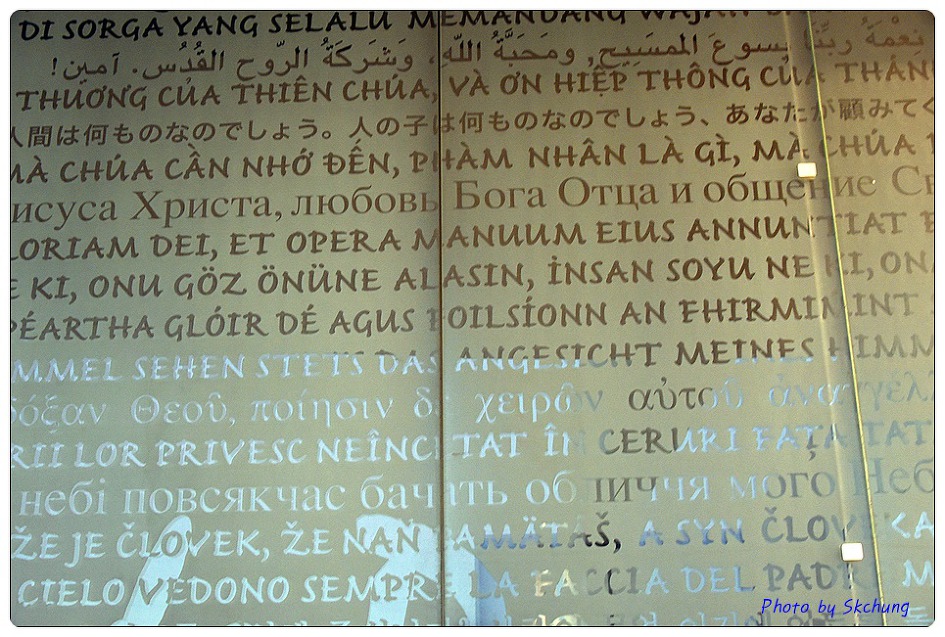 DI SORGA YANG SELALU MEMANDANG WAJAH
نعْمَةُ ربِّنَا يسوعَ المسَيِح, ومَحَبَّةُ اللّه، وَشَركَةُ الرّوح القُدُس. آمين!
THƯƠNG CỦA THIÊN CHÚA, VÀ ƠN HIỆP THÔNG CỦA THÁN
人間は何ものなのでしょう。人の子は何ものなのでしょう、あなたが顧みてく
MÀ CHÚA CẦN NHỚ ĐẾN, PHÀM NHÂN LÀ GÌ, MÀ CHÚA
исуса Христа, любовь Бога Отца и общение Св
LORIAM DEI, ET OPERA MANUUM EIUS ANNUNTIAT
E KI, ONU GÖZ ÖNÜNE ALASIN, İNSAN SOYU NE KI, ONA
PÉARTHA GLÓIR DÉ AGUS FOILSÍONN AN FHIRMIMINT
MMEL SEHEN STETS DAS ANGESICHT MEINES HIMM
δόξαν Θεοῦ, ποίησιν δὲ χειρῶν αὐτοῦ ἀναγγέλ
RII LOR PRIVESC NEÎNCETAT ÎN CERURI FAȚA TAT
небі повсякчас бачать обличчя мого Неб
ŽE JE ČLOVEK, ŽE NAŇ PAMÄTÁŠ, A SYN ČLOVEKA
CIELO VEDONO SEMPRE LA FACCIA DEL PADRE M
Photo by Skchung